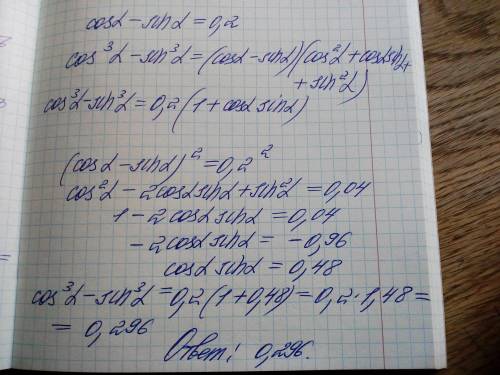 cosα - sinα = 0,2
cos³α - sin³α = (cosα - sinα)(cos²α + cosα sinα +
+ sin²α)
cos³α - sin³α = 0,2 (1 + cosα sinα)
(cosα - sinα)² = 0,2²
cos²α - 2cosα sinα + sin²α = 0,04
1 - 2cosα sinα = 0,04
- 2cosα sinα = -0,96
cosα sinα = 0,48
cos³α - sin³α = 0,2 (1 + 0,48) = 0,2 · 1,48 =
= 0,296
Ответ: 0,296.